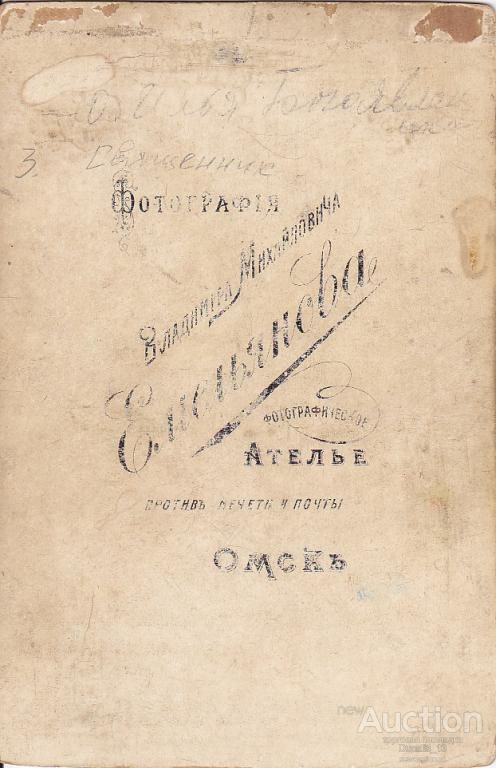 О. Илья Богоявлен
ский
3. Священник
Фотографія
Владиміра Михайловича
Емельянова
Фотографическое
Ателье
противъ мечети и почты
Омскъ
newAuction